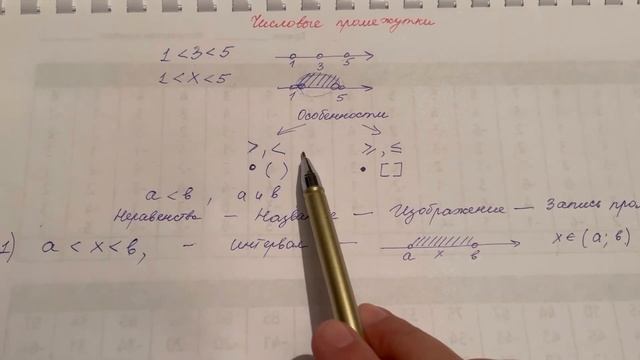 Числовые промежутки
1 < 3 < 5
1 3 5
1 < x < 5
1 5
Особенности
>, < ≥, ≤
• ( ) • [ ]
a < b, a и b
Неравенство — Название — Изображение — Запись про
1) a < x < b, — интервал — a x b x ∈ (a; b)